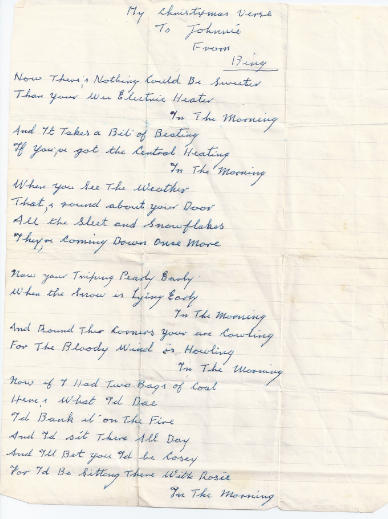 My Christxmas Verse
To Johnnie
From
Bing
Now There's Nothing Could Be Sweeter
Than your Wee Electric Heater
In The Morning
And It Takes a Bit of Beating
If You've got the Central Heating
In The Morning
When you See The Weather
That,s round about your Door
All the Sleet and Snowflakes
They,r Coming Down Once More
Now your Early
When the Snow is Lying
In The Morning
And Round The Corners your are
For The Bloody Wind is Howling
In The Morning
Now if I Had Two Bags of Coal
Here's What I'd Dae
I'd Bank it on The Fire
And I'd sit There All Day
And I'll Bet you I'd be Cosey
For I'd Be Sitting There With Rosie
In The Morning